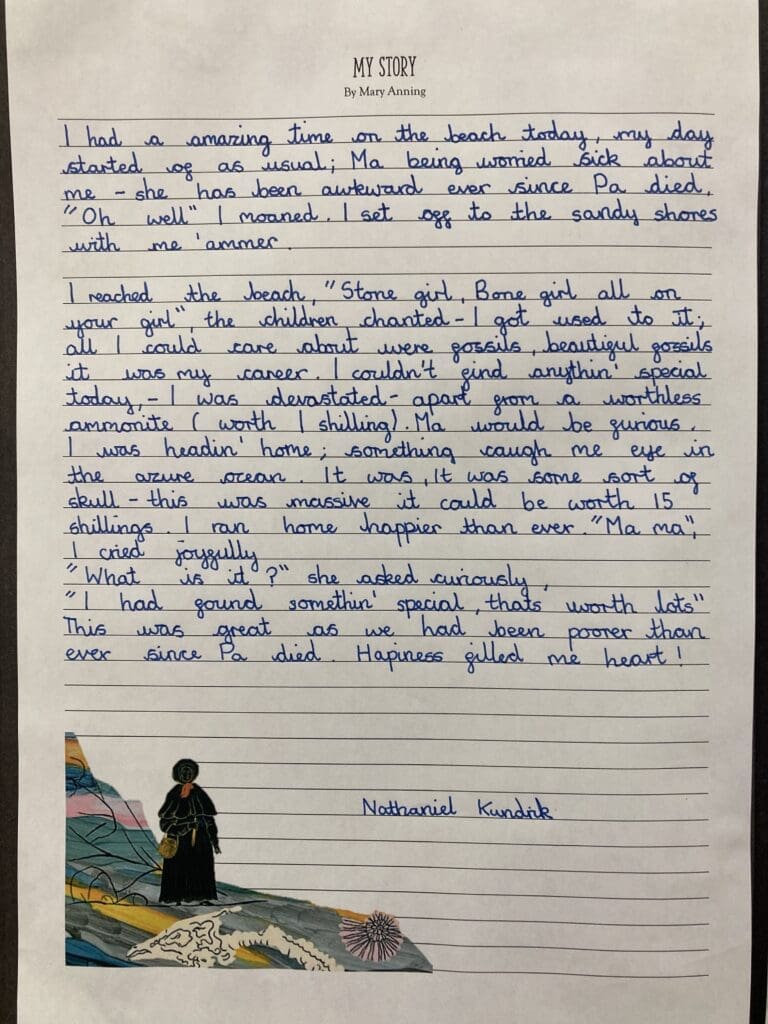 MY STORY
By Mary Anning
I had a amazing time on the beach today, my day
started of as usual; Ma being worried sick about
me - she has been awkward ever since Pa died.
"Oh well" I moaned. I set off to the sandy shores
with me 'ammer.
I reached the beach, "Stone girl, Bone girl all on
your girl", the children chanted - I got used to it;
all I could care about were fossils, beautiful fossils
it was my career. I couldn't find anythin' special
today, - I was devastated - apart from a worthless
ammonite (worth 1 shilling). Ma would be furious.
I was headin' home; something caugh me eye in
the azure ocean. It was, It was some sort of
skull - this was massive it could be worth 15
shillings. I ran home happier than ever. "Ma ma",
I cried joyfully
"What is it?" she asked curiously,
"I had found somethin' special, thats worth lots"
This was great as we had been poorer than
ever since Pa died. Hapiness filled me heart!
Nathaniel Kundrik